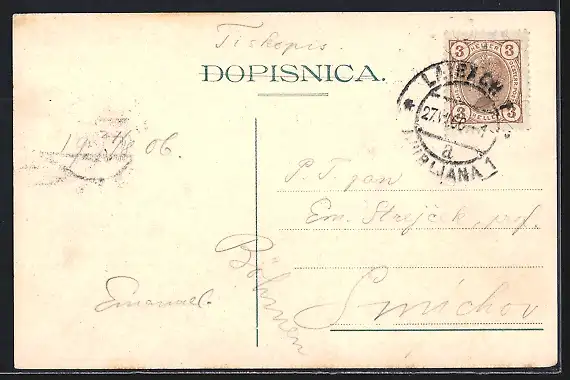 Tiskopis
DOPISNICA.
3 HELLER 3
3 HELLER 3
LAIBACH 1
27.VI.06
a
LJUBLJANA 1
06
P. T. pan
Em. Strejček, prof.
Smíchov
Böhmen
Emanuel.